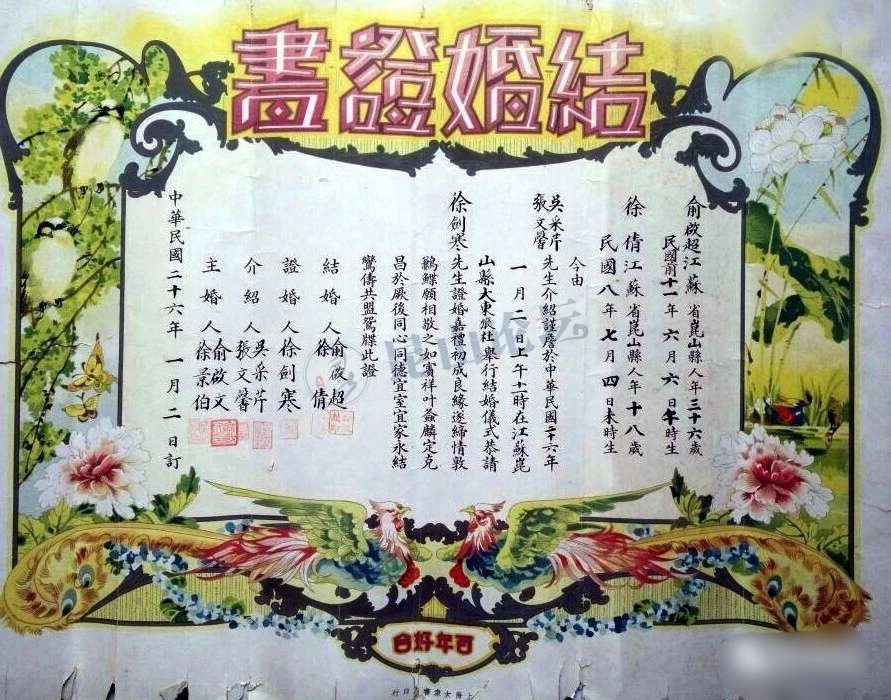 結婚證書
俞啟超江蘇省崑山縣人年三十六歲
民國前十一年六月六日午時生
徐倩江蘇省崑山縣人年十八歲
民國八年七月四日未時生
今由
吳采芹
張文馨先生介紹謹詹於中華民國二十六年
一月二日上午十一時在江蘇崑
山縣大東旅社舉行結婚儀式恭請
徐劍寒先生證婚嘉禮初成良緣遂締情敦
鶼鰈願相敬之如賓祥叶螽麟定克
昌於厥後同心同德宜室宜家永結
鸞儔共盟鴛牒此證
結婚人俞啟超
徐倩
證婚人徐劍寒
介紹人吳采芹
張文馨
主婚人俞啟文
徐景伯
中華民國二十六年一月二日訂
百年好合
上海大衆書局印行
昆山论坛